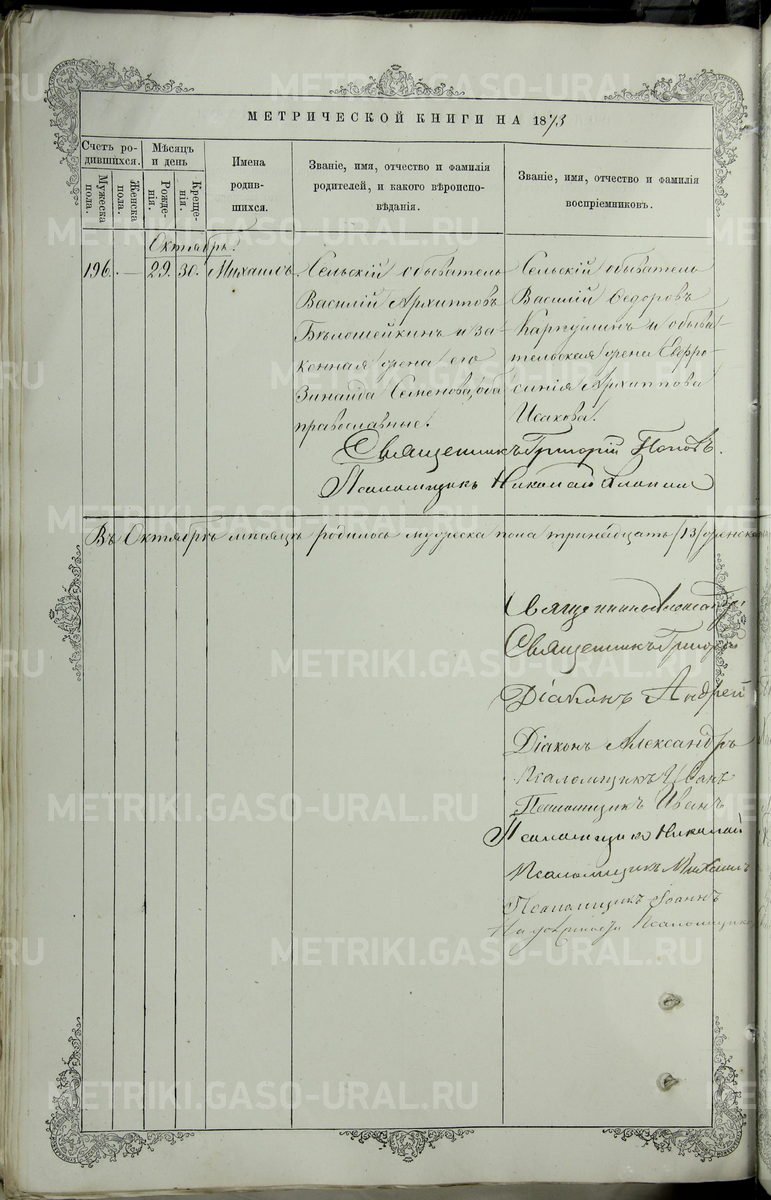 МЕТРИЧЕСКОЙ КНИГИ НА 1873
Счетъ родившихся.
Мужеска пола.
Женска пола.
Мѣсяцъ и день
Рожденія.
Крещенія.
Имена родившихся.
Званіе, имя, отчество и фамилія
родителей, и какого вѣроиспо-
вѣданія.
Званіе, имя, отчество и фамилія
воспріемниковъ.
Октябрь.
196. — 29. 30. Михаилъ.
Сельскій обыватель
Василій Архипповъ
Бѣлошейкинъ и за-
конная жена его
Зинаида Семенова, оба
православные.
Сельскій обыватель
Василій Ѳедоровъ
Карпушинъ и обыва-
тельская жена Евфро-
синія Архиппова
Исакова.
Священникъ Григорій Поповъ.
Псаломщикъ Николай
Въ Октябрѣ мѣсяцѣ родилось мужеска пола тринадцать /13/ женска
Священникъ
Священникъ Григорій
Діаконъ Андрей
Діаконъ Александръ
Псаломщикъ Иванъ
Псаломщикъ Иванъ
Псаломщикъ Николай
Псаломщикъ Михаилъ
Псаломщикъ Іоаннъ
Псаломщика
METRIKI.GASO-URAL.RU